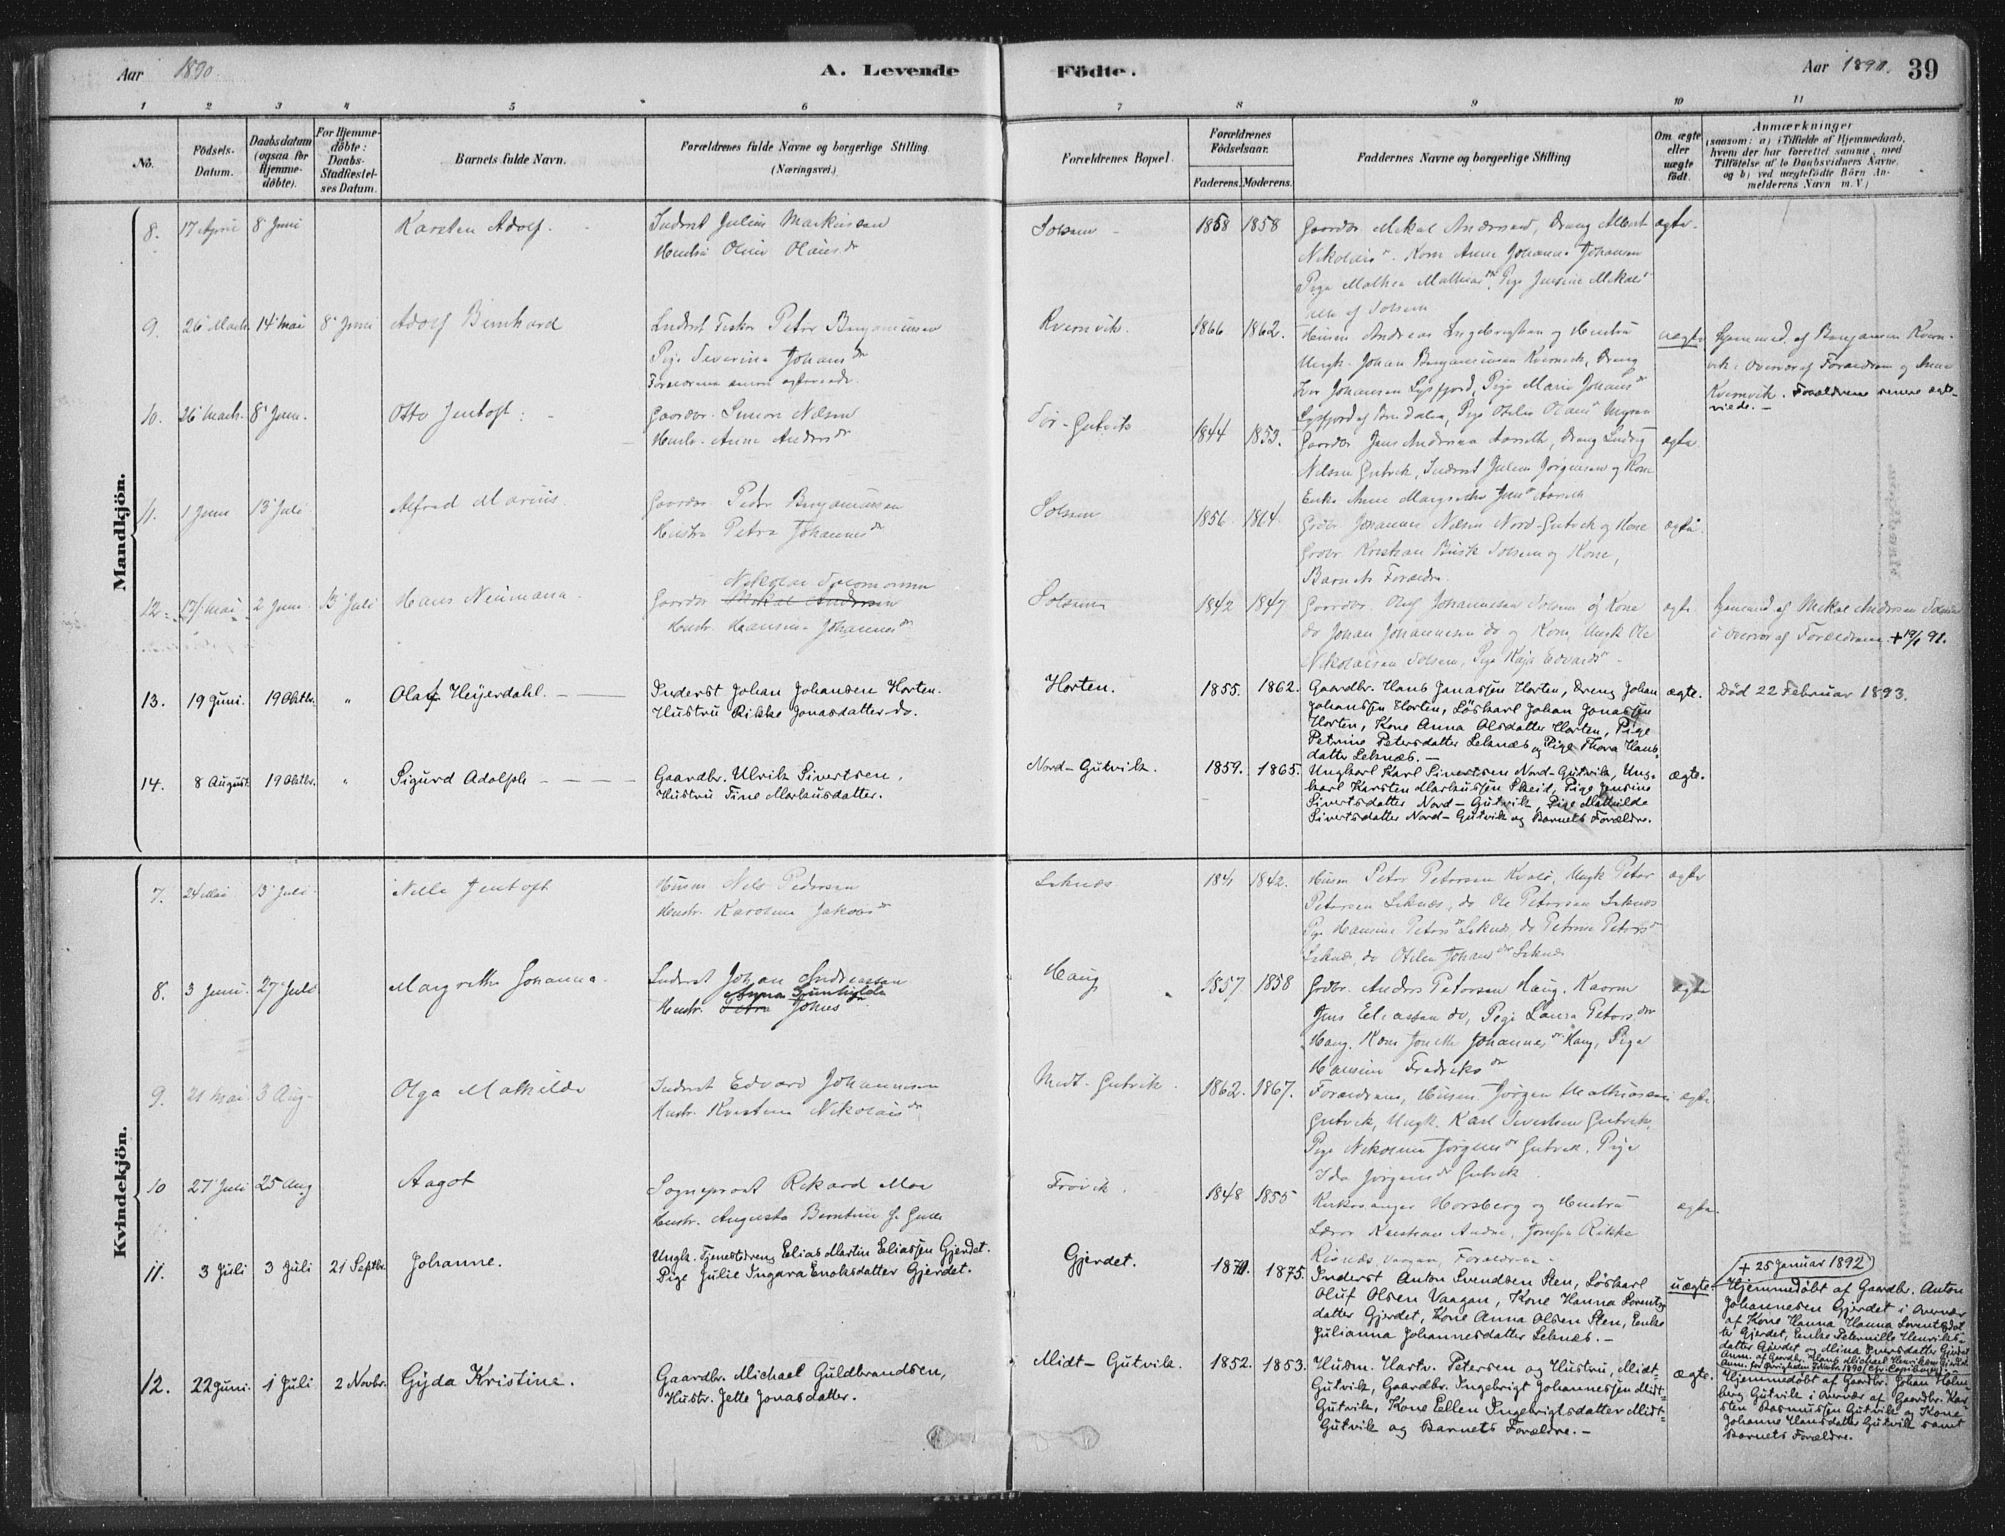 Aar 1890.
A. Levende
Födte.
Aar 1890.
39
1 2 3 4 5 6 7 8 9 10 11
No.
Födsels-
Datum.
Daabsdatum
(ogsaa for
Hjemme-
døbte).
For Hjemme-
døbte:
Daabs-
Stadfæstel-
ses Datum.
Barnets fulde Navn.
Forældrenes fulde Navne og borgerlige Stilling
(Næringsvei.)
Forældrenes Bopæl.
Forældrenes
Födselsaar.
Faderens. Moderens.
Faddernes Navne og borgerlige Stilling
Om ægte
eller
uægte
födt.
Anmærkninger
(saasom: a) i Tilfælde af Hjemmedaab,
hvem der har forrettet samme, med
Tilföielse af to Daabsvidners Navne,
og b) ved uægtefödte Börn An-
melderens Navn m. V.)
Mandkjön.
8. 17 April 8 Juni
Karsten Adolf.
Inderst Julius Markussen
Hustru Oline Olausdr
Solsem
1858 1858
Gaardbr. Mikal Andersen, Dreng Albert
Nikolais. Kone Anne Johanna Johansen
Pige Mathea Mathiasdr, Pige Jensine Mikals
alle af Solsem
ægte.
9. 26 Marts 14 Mai 8 Juni
Adolf Bernhard
Inderst Fisker Peter Benjaminsen
Pige Severine Johansdr
Forældrene senere ægteviede.
Kvernvik.
1866 1862.
Husm Andreas Ingebrigtsen og Hustru
Ungk. Johan Benjaminsen Kvernvik, Dreng
Johansen Lysfjord, Pige Marie Johansdr
uægte
Hjemmed. af Benjamin Kvern-
vik i Overvær af Forældrene og Anne
Kvernvik. Forældrene senere ægte-
viede.
10. 26 Marts. 8 Juni.
Otto Jentoft.
Gaardbr. Simon Nilsen
Hustr. Anne Andersdr
Sör-Gutvik
1844 1853.
Gaardbr Jens Andersen Aarseth, Dreng Ludvig
Nilsen Gutvik, Inderst Julius Jörgensen og Kone
Enke Anne Margrethe Jensdr Aarseth
ægte
11. 1 Juni 13 Juli
Alfred Marius
Gaardbr. Peder Benjaminsen
Hustru Petra Johannesdr
Solsem
1856 1864
Grdbr Johannes Nilsen Nord-Gutvik og Kone
Grdbr Kristian Busk Solsem og Kone,
Barnets Forældre
ægte.
12. 17 Mai 2 Juni 13 Juli
Hans Neumann.
Nikolai Salomonsen
Gaardbr Mikal Andersen
Hustr. Hansine Johannesdr
Solsem
1842 1847
Gaardbr. Oluf Johannesen Solsem og Kone
do Johan Johannesen do og Kone, Ungk Ole
Nikolaisen Solsem, Pige Kaja Edvardsdr
ægte
Hjemmed. af Mikal Andersen Solsem
i Overvær af Forældrene. + 19/1 91.
13. 19 Juni. 19 Oktbr. "
Olaf Heyerdahl.
Inderst Johan Johansen Horten.
Hustru Rikke Jonasdatter do.
Horten.
1855. 1862.
Gaardbr. Hans Jonassen Horten, Dreng Johan
Johanssen Horten, Löskarl Johan Jonassen
Horten, Kone Anna Olsdatter Horten, Pige
Petrine Petersdatter Leknæs og Pige Thora Hans-
datter Leknæs.
ægte.
Död 22 Februar 1893.
14. 8 August. 19 Oktbr. "
Sigurd Adolph
Gaardbr. Ulrik Sivertsen,
Hustru Tine Markusdatter.
Nord-Gutvik.
1859. 1865.
Ungkarl Karl Sivertsen Nord-Gutvik, Ung-
karl Karsten Markussen Skeid, Pige Jensine
Sivertsdatter Nord-Gutvik, Pige Mathilde
Sivertsdatter Nord-Gutvik og Barnets Forældre.
ægte.
Kvindekjön.
7. 24 Mai 13 Juli
Nille Jentoft
Husm Nils Pedersen
Hustr. Karoline Jakobsdr
Leknæs
1841 1842.
Husm Peter Petersen Kvalö, Ungk Peter
Petersen Leknæs, do Ole Petersen Leknæs
Pige Hansine Petersdr Leknæs, do Petrine Petersdr
Leknæs, do Otelia Johansdr Leknæs
ægte
8. 3 Juni. 27 Juli
Margrethe Johanna.
Inderst Johan Andreassen
Anna Gunhilda
Hustr. Petra Johnsdr
Haug
1857 1858
Grdbr. Anders Petersen Haug. Kaarm
Jens Eliassen do, Pige Laura Petersdr
Haug. Kone Johannesdr Haug, Pige
Hansine Fredriksdr
ægte
9. 21 Mai 3 Aug.
Olga Mathilde
Inderst Edvard Johannesen
Hustr. Kristine Nikolaisdr
Midt-Gutvik.
1862. 1867.
Forældrene, Husm. Jörgen Mathiasen
Gutvik, Ungk. Karl Sivertsen Gutvik,
Pige Nikoline Jörgensdr Gutvik, Pige
Ida Jörgensdr Gutvik
ægte
10 27 Juli 25 Aug
Aagot
Sogneprest Rikard Moe
Hustr. Augusta Berntine f.
Frövik.
1848 1855
Kirkesanger Horsberg og Hustru
Lærer Kristian Josefa Rikke
Forældrene
ægte.
11. 3 Juli 3 Juli 21 Septbr.
Johanne.
Ungk. Tjenestdreng Elias Martin Eliassen Gjerdet.
Pige Julie Ingara Enoksdatter Gjerdet.
Gjerdet.
1871. 1875.
Inderst Anton Svendsen Sten, Löskarl
Oluf Olsen Vaagan, Kone Hanna Lorentz-
datter Gjerdet, Kone Anna Olsen Sten, Enke
Julianna Johannesdatter Leknæs.
uægte.
+ 25 Januar 1892
Hjemmedöbt af Gaardbr. Anton
Johannesen Gjerdet i Overvær
af Kone Hanna Hanna Lorentzdat-
ter Gjerdet, Enke Peternille Henriks-
datter Gjerdet og Mina Iversdatter Gjerdet
12. 22 Juni. 1 Juli 2 Novbr.
Gyda Kristine.
Gaardbr. Michael Guldbrandsen,
Hustr. Jette Jonasdatter.
Midt-Gutvik.
1852. 1853.
Husm. Hartv. Petersen og Hustru, Midt-
Gutvik, Gaardbr. Ingebrigt Johannessen Midt-
Gutvik, Kone Ellen Ingebrigtsdatter Midt-
Gutvik og Barnets Forældre.
ægte.
Hjemmedöbt af Gaardbr. Johan Holm-
berg Gutvik i Overvær af Gaardbr. Kar-
sten Rasmussen Gutvik og Kone
Johanne Hansdatter Gutvik samt
Barnets Forældre.